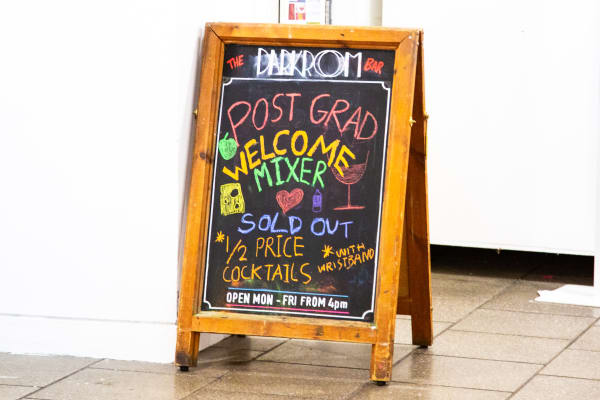 THE DARKROOM BAR
POST GRAD
WELCOME
MIXER
SOLD OUT
*½ PRICE
COCKTAILS
*WITH
WRISTBAND
OPEN MON - FRI FROM 4pm